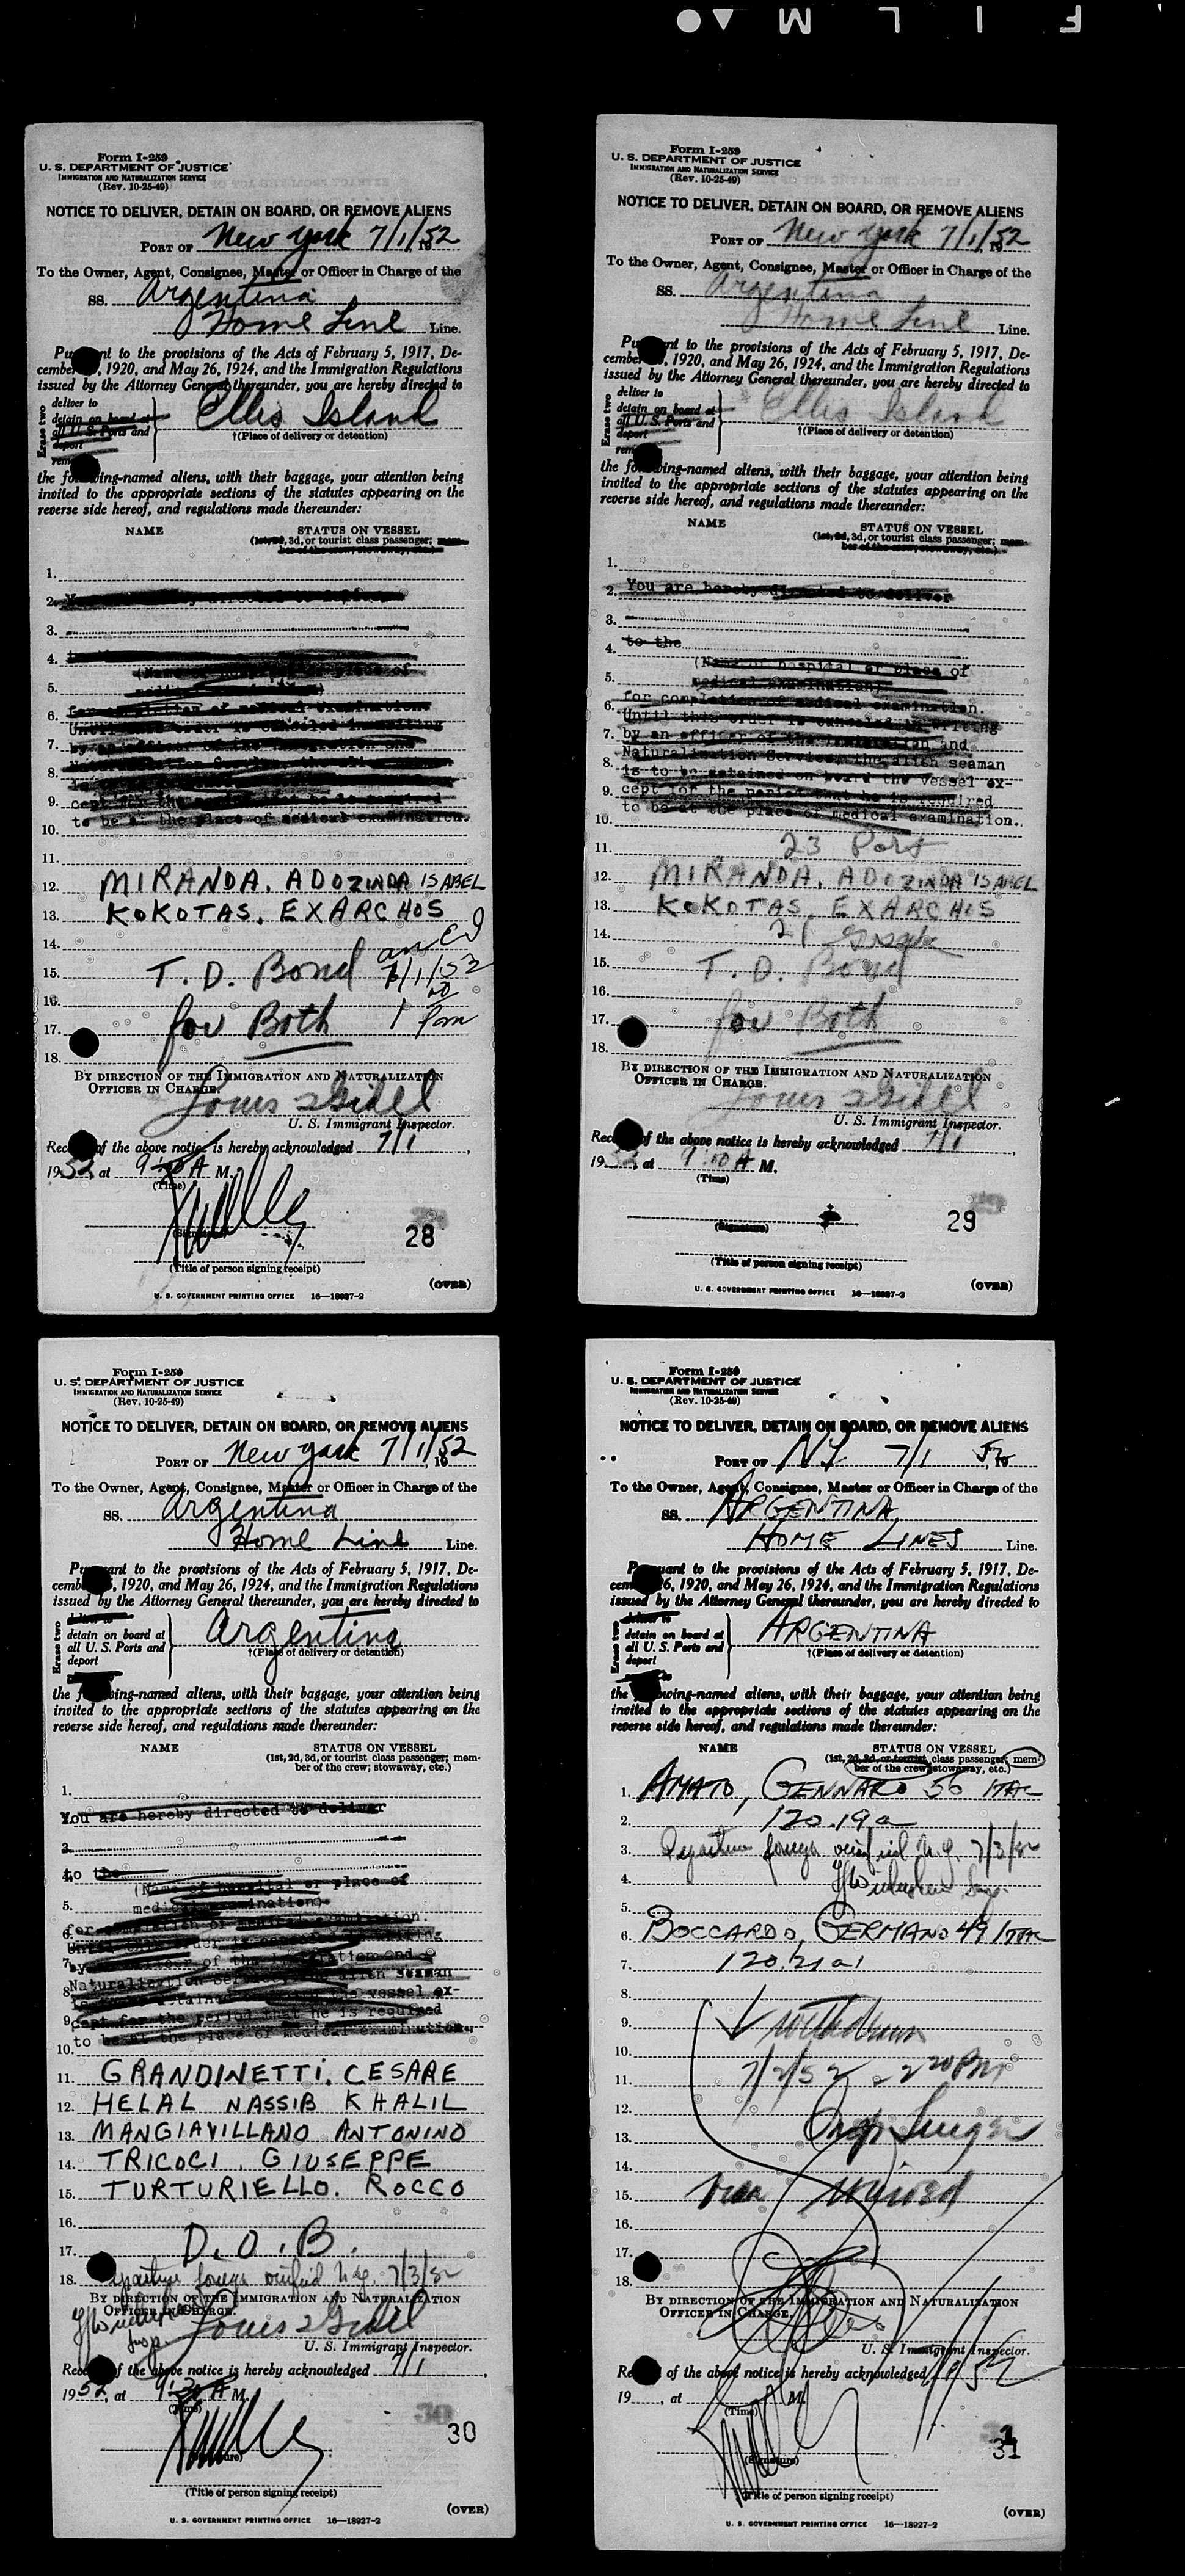 F I L M
Form I-259
U. S. DEPARTMENT OF JUSTICE
IMMIGRATION AND NATURALIZATION SERVICE
(Rev. 10-25-49)
NOTICE TO DELIVER, DETAIN ON BOARD, OR REMOVE ALIENS
PORT OF New York 7/1/52
To the Owner, Agent, Consignee, Master or Officer in Charge of the
SS. Argentina
Home Line Line.
to the provisions of the Acts of February 5, 1917, De-
cember , 1920, and May 26, 1924, and the Immigration Regulations
issued by the Attorney General thereunder, you are hereby directed to
Erase two
deliver to
detain on board at
all U. S. Ports and
deport
Ellis Island
†(Place of delivery or detention)
the following-named aliens, with their baggage, your attention being
invited to the appropriate sections of the statutes appearing on the
reverse side hereof, and regulations made thereunder:
NAME STATUS ON VESSEL
(1st, 2d, 3d, or tourist class passenger; mem-
ber of the crew; stowaway, etc.)
1.
2.
3.
4.
5.
6.
7.
8.
9.
to be at the place of medical examination.
10.
11.
12. MIRANDA, ADOZINDA ISABEL
13. KOKOTAS, EXARCHOS
14.
15. T. D. Bond 7/1/52
16.
17. for Both 1 Pm
18.
BY DIRECTION OF THE IMMIGRATION AND NATURALIZATION
OFFICER IN CHARGE.
U. S. Immigrant Inspector.
of the above notice is hereby acknowledged 7/1,
1952, at M.
(Time)
(Signature)
28
(Title of person signing receipt)
(OVER)
U. S. GOVERNMENT PRINTING OFFICE 16—18927-2
Form I-259
U. S. DEPARTMENT OF JUSTICE
IMMIGRATION AND NATURALIZATION SERVICE
(Rev. 10-25-49)
NOTICE TO DELIVER, DETAIN ON BOARD, OR REMOVE ALIENS
PORT OF New York 7/1/52
To the Owner, Agent, Consignee, Master or Officer in Charge of the
SS. Argentina
Home Line Line.
to the provisions of the Acts of February 5, 1917, De-
cember , 1920, and May 26, 1924, and the Immigration Regulations
issued by the Attorney General thereunder, you are hereby directed to
Erase two
deliver to
detain on board at
all U. S. Ports and
deport
Ellis Island
†(Place of delivery or detention)
the following-named aliens, with their baggage, your attention being
invited to the appropriate sections of the statutes appearing on the
reverse side hereof, and regulations made thereunder:
NAME STATUS ON VESSEL
(1st, 2d, 3d, or tourist class passenger; mem-
ber of the crew; stowaway, etc.)
1.
2. You are hereby directed to deliver
3.
4. to the
(Name of hospital or place of
5. medical examination)
for completion of medical examination.
6. Until this order is canceled in writing
7. by an officer of the Immigration and
Naturalization Service, the alien seaman
8. is to be detained on board the vessel ex-
9. cept for the period that he is required
to be at the place of medical examination.
10.
11. 23 Port
12. MIRANDA, ADOZINDA ISABEL
13. KOKOTAS, EXARCHOS
14. 21
15. T. D. Bond
16.
17. for Both
18.
BY DIRECTION OF THE IMMIGRATION AND NATURALIZATION
OFFICER IN CHARGE.
U. S. Immigrant Inspector.
of the above notice is hereby acknowledged 7/1,
1952, at 9:10 A M.
(Time)
(Signature)
29
(Title of person signing receipt)
(OVER)
U. S. GOVERNMENT PRINTING OFFICE 16—18927-2
Form I-259
U. S. DEPARTMENT OF JUSTICE
IMMIGRATION AND NATURALIZATION SERVICE
(Rev. 10-25-49)
NOTICE TO DELIVER, DETAIN ON BOARD, OR REMOVE ALIENS
PORT OF New York 7/1/52
To the Owner, Agent, Consignee, Master or Officer in Charge of the
SS. Argentina
Home Line Line.
to the provisions of the Acts of February 5, 1917, De-
cember , 1920, and May 26, 1924, and the Immigration Regulations
issued by the Attorney General thereunder, you are hereby directed to
Erase two
detain on board at
all U. S. Ports and
deport
Argentina
†(Place of delivery or detention)
the following-named aliens, with their baggage, your attention being
invited to the appropriate sections of the statutes appearing on the
reverse side hereof, and regulations made thereunder:
NAME STATUS ON VESSEL
(1st, 2d, 3d, or tourist class passenger; mem-
ber of the crew; stowaway, etc.)
1.
You are hereby directed to deliver
3.
to the
(Name of hospital or place of
5. medical examination)
for completion of medical examination.
Naturalization Service, the alien seaman
vessel ex-
9. cept for the period that he is required
to be at the place of medical examination.
10.
11. GRANDINETTI. CESARE
12. HELAL NASSIB KHALIL
13. MANGIAVILLANO ANTONINO
14. TRICOCI. GIUSEPPE
15. TURTURIELLO. ROCCO
16.
17. D.O.B.
18. Departure foreign verified N.Y. 7/3/52
BY DIRECTION OF THE IMMIGRATION AND NATURALIZATION
OFFICER IN CHARGE.
U. S. Immigrant Inspector.
of the above notice is hereby acknowledged 7/1,
1952, at M.
(Time)
(Signature)
30
(Title of person signing receipt)
(OVER)
U. S. GOVERNMENT PRINTING OFFICE 16—18927-2
Form I-259
U. S. DEPARTMENT OF JUSTICE
IMMIGRATION AND NATURALIZATION SERVICE
(Rev. 10-25-49)
NOTICE TO DELIVER, DETAIN ON BOARD, OR REMOVE ALIENS
PORT OF NY 7/1 52
To the Owner, Agent, Consignee, Master or Officer in Charge of the
SS. ARGENTINA
HOME LINES Line.
to the provisions of the Acts of February 5, 1917, De-
cember 6, 1920, and May 26, 1924, and the Immigration Regulations
issued by the Attorney General thereunder, you are hereby directed to
Erase two
detain on board at
all U. S. Ports and
deport
ARGENTINA
†(Place of delivery or detention)
the following-named aliens, with their baggage, your attention being
invited to the appropriate sections of the statutes appearing on the
reverse side hereof, and regulations made thereunder:
NAME STATUS ON VESSEL
(1st, 2d, 3d, or tourist class passenger; mem-
ber of the crew; stowaway, etc.)
1. AMATO, GENNARO 56 ITAL
2. 120.19a
3. Departure foreign verified N.Y. 7/3/52
4.
5.
6. BOCCARDO, GERMANO 49 ITAL
7. 120.21a1
8.
9. withdrawn
10.
11. 7/2/52 - 2 20 PM
12.
13.
14.
15.
16.
17.
18.
BY DIRECTION OF THE IMMIGRATION AND NATURALIZATION
OFFICER IN CHARGE.
U. S. Immigrant Inspector.
of the above notice is hereby acknowledged 7/1/52
19 , at M.
(Time)
(Signature)
31
(Title of person signing receipt)
(OVER)
U. S. GOVERNMENT PRINTING OFFICE 16—18927-2